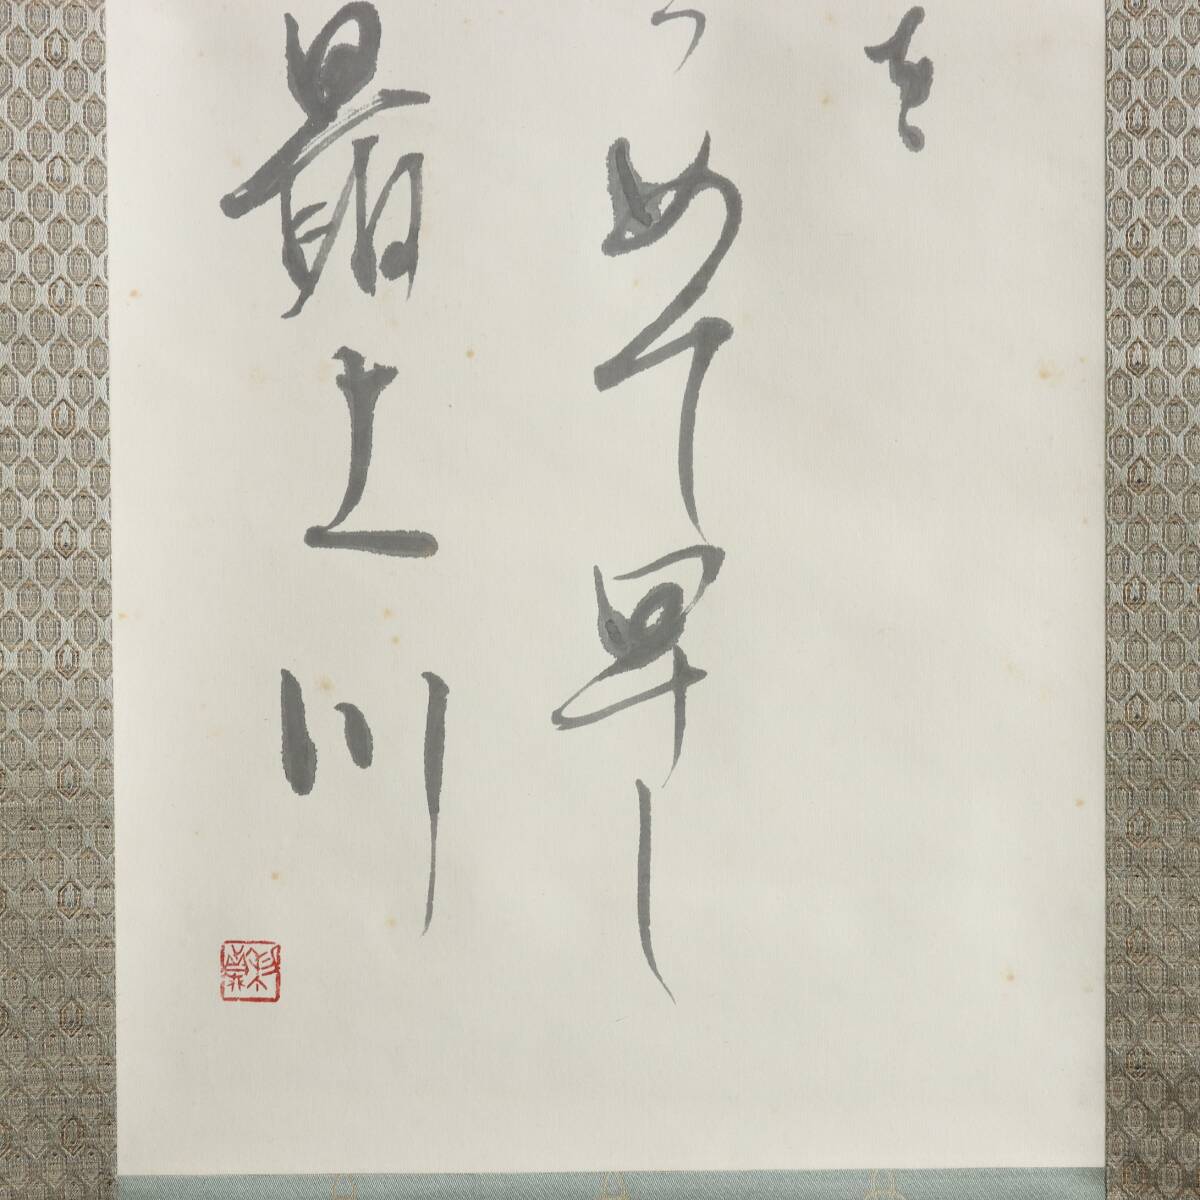 を
つめて早し
最上川